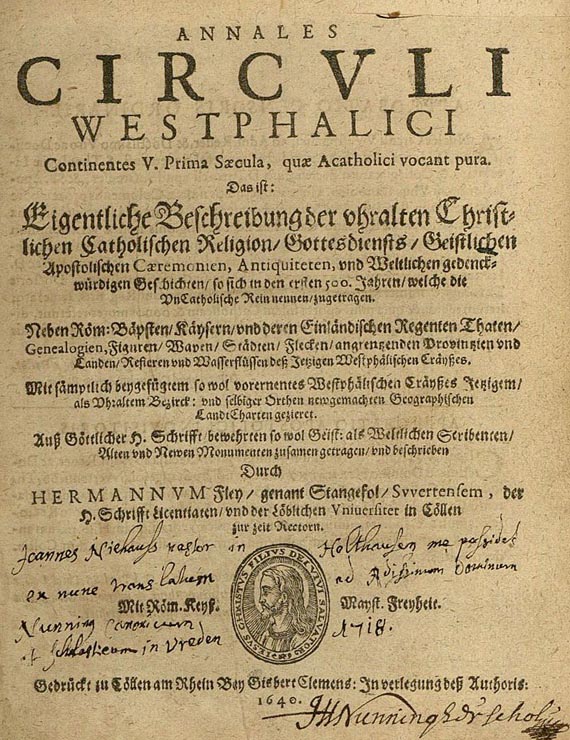 ANNALES
CIRCVLI
WESTPHALICI
Continentes V. Prima Sæcula, quæ Acatholici vocant pura.
Das ist:
Eigentliche Beschreibung der vhralten Christ-
lichen Catholischen Religion/ Gottesdiensts/ Geistlichen
Apostolischen Cæremonien, Antiquiteten, vnd Weltlichen gedenck-
würdigen Geschichten/ so sich in den ersten 500. Jahren/ welche die
VnCatholische Rein nennen/ zugetragen.
Neben Röm: Bäpsten/ Käysern/ vnd deren Einländischen Regenten Thaten/
Genealogien, Figuren/ Wapen/ Städten/ Flecken/ angrentzenden Provintzien vnd
Landen/ Refieren vnd Wasserflüssen deß Jetzigen Westphälischen Cräyßes.
Mit sämptlich beygefügtem so wol vorernentes Westphälischen Cräyßes Jetzigem/
als Vhraltem Bezirck: vnd selbiger Orthen newgemachten Geographischen
LandtCharten gezieret.
Auß Göttlicher H. Schrifft/ bewehrten so wol Geist: als Weltlichen Scribenten/
Alten vnd Newen Monumenten zusamen getragen/ vnd beschrieben
Durch
HERMANNVM Fley/ genant Stangefol/ Svvertensem, der
H. Schrifft Licentiaten/ vnd der Löblichen Vniversitet in Cöllen
zur zeit Rectorn.
Joannes Niehauß pastor in Holthausen me possidet
ex nunc translatum ad Dominum
Mit Röm. Keyß. Mayst. Freyheit.
IESVS CHRISTVS FILIVS DEI VIVI SALVATOR
Nunning Canonicum 1718.
et Scholasticum in Vreden
Gedrückt zu Cöllen am Rhein Bey Gisbert Clemens: In verlegung deß Authoris:
1640.
JH Nunning